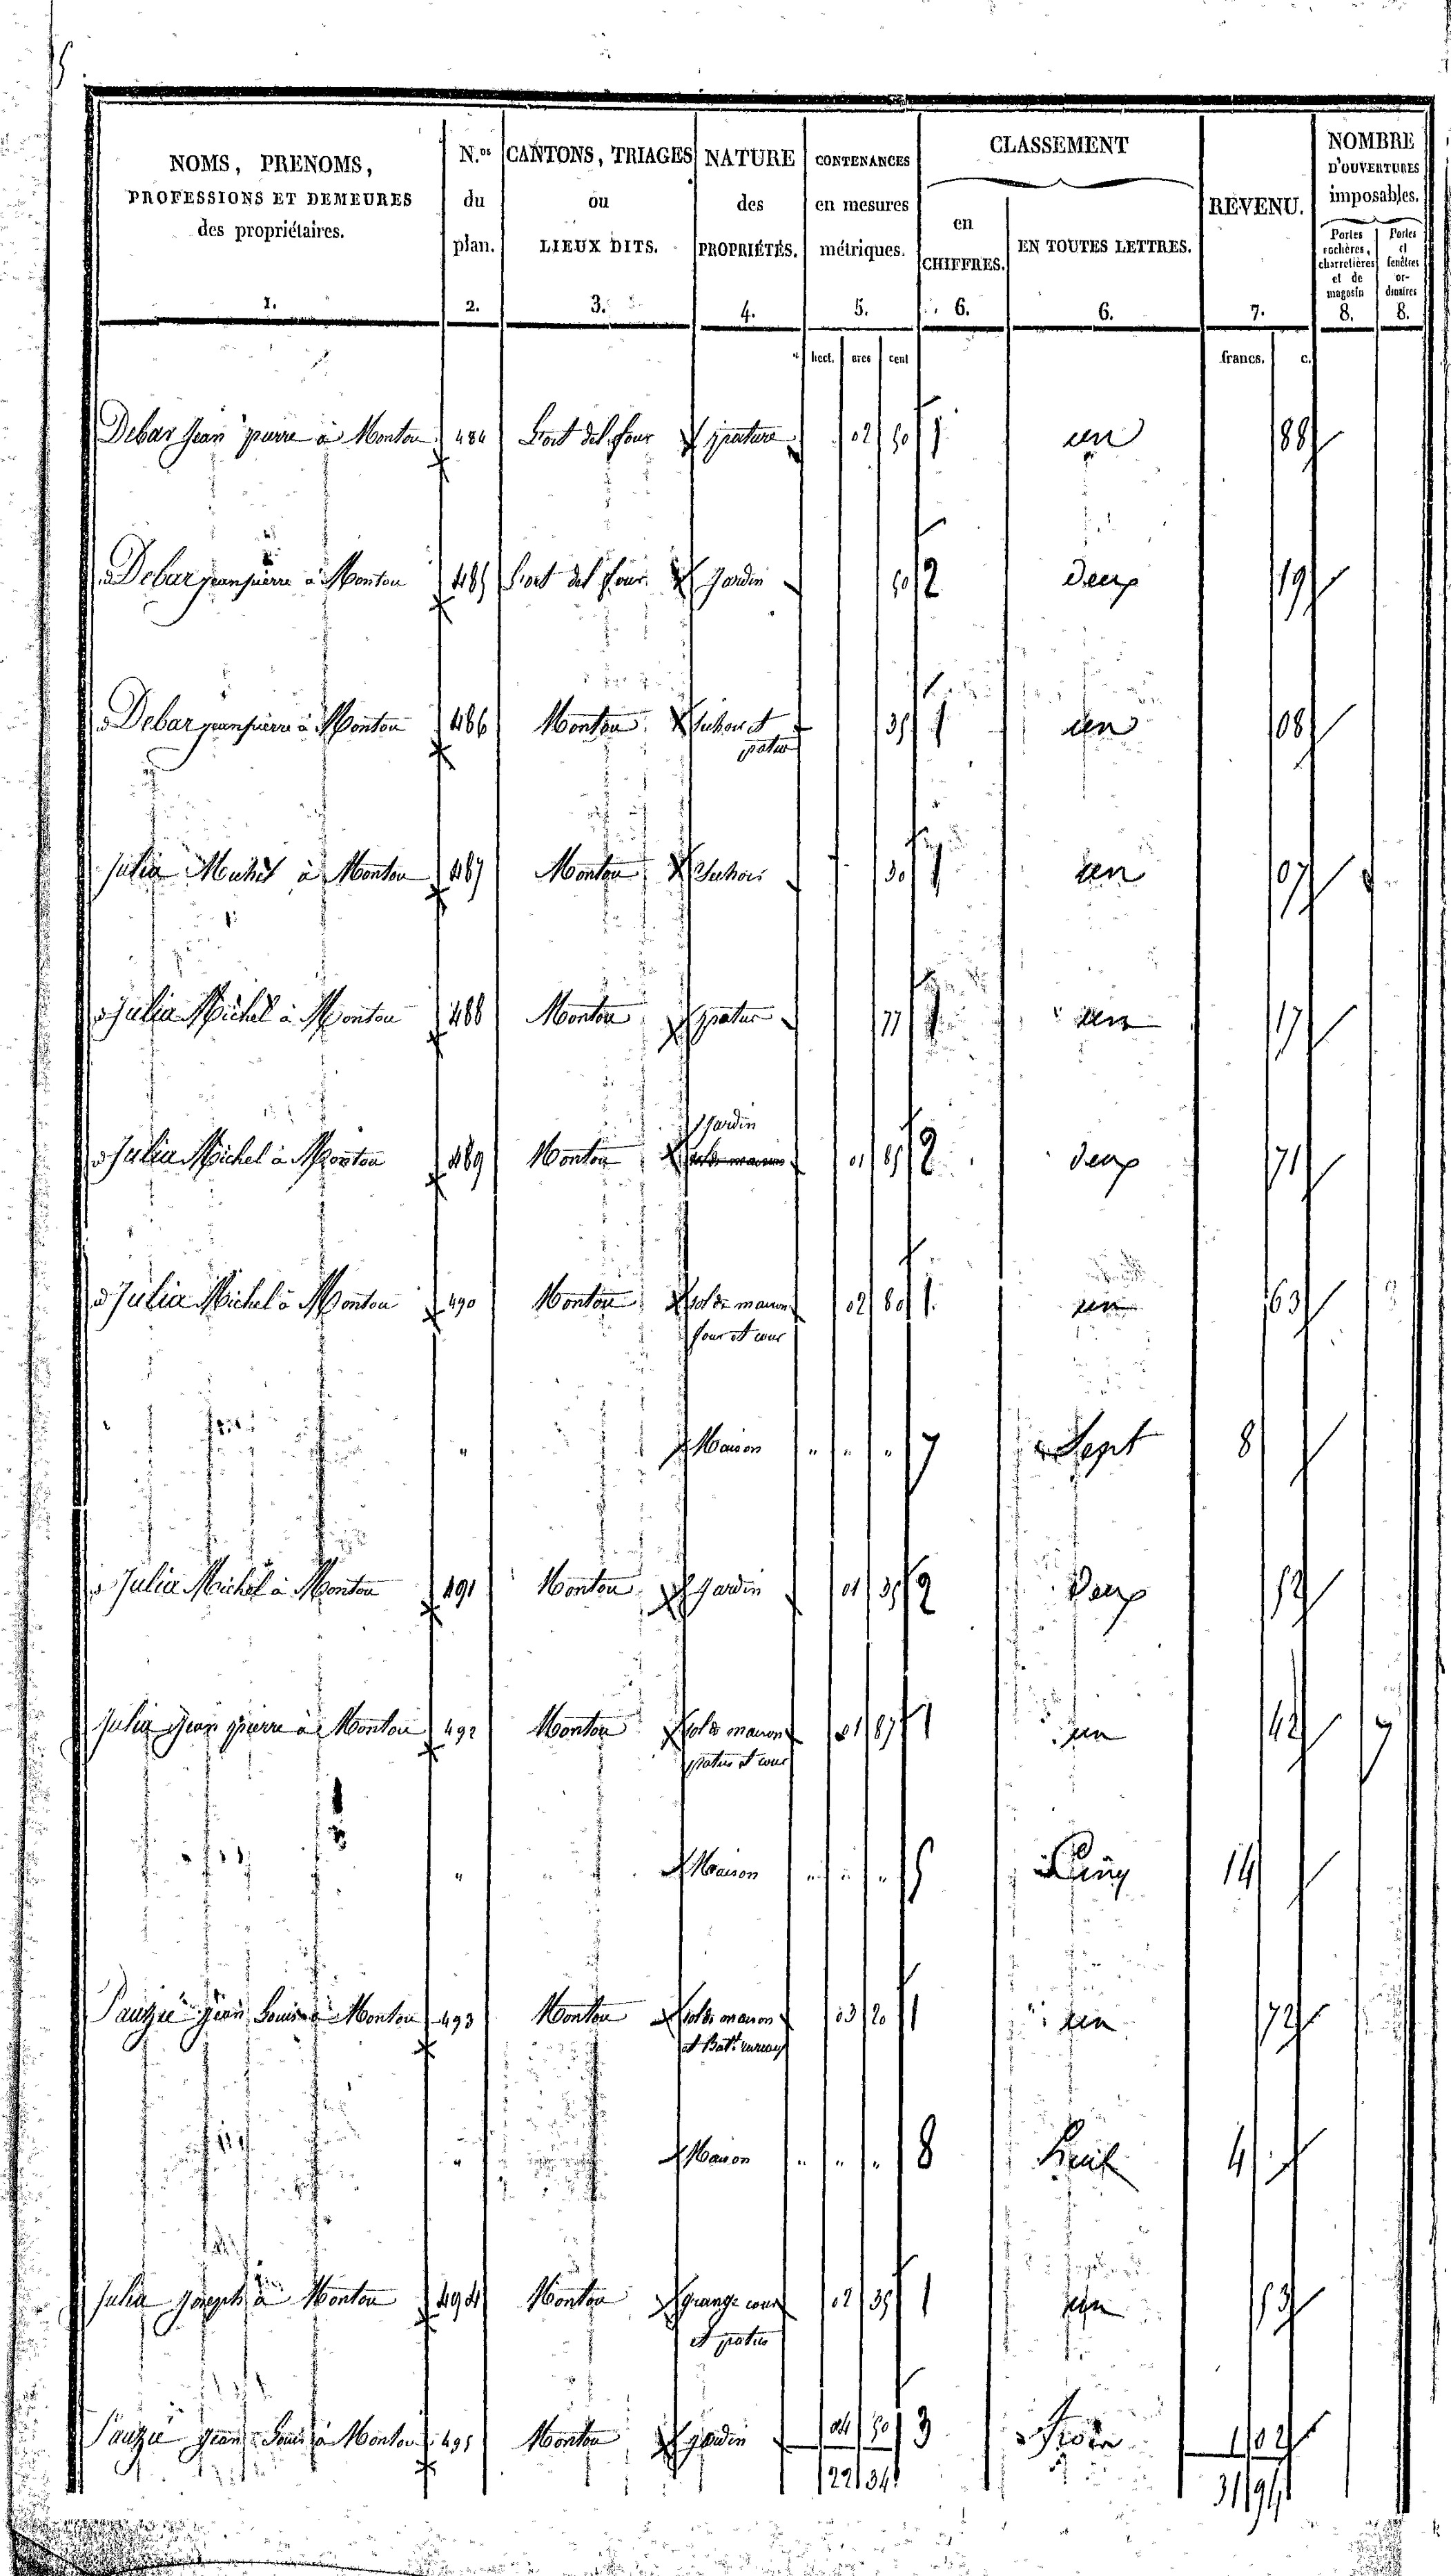 NOMS, PRENOMS, PROFESSIONS ET DEMEURES des propriétaires. 1.
N.os du plan. 2.
CANTONS, TRIAGES ou LIEUX DITS. 3.
NATURE des PROPRIÉTÉS. 4.
CONTENANCES en mesures métriques. 5.
CLASSEMENT
en CHIFFRES. 6.
EN TOUTES LETTRES. 6.
REVENU. 7.
NOMBRE D'OUVERTURES imposables.
Portes cochères, charretières et de magasin 8.
Portes et fenêtres ordinaires 8.
hect. ares cent francs. c.
Debar Jean pierre à Montou 484 del four pature 02 50 1 un 88
Debar jean pierre à Montou 485 del four Jardin 50 2 deux 19
Debar jean pierre à Montou 486 Montou et 35 1 un 08
patus
Julia Michel à Montou 487 Montou 30 1 un 07
Julia Michel à Montou 488 Montou patus 77 1 un 17
Jardin
Julia Michel à Montou 489 Montou sol de maison 01 85 2 deux 71
Julia Michel à Montou 490 Montou sol de maison 02 80 1 un 63
four et cour
" Maison " " " 7 Sept 8
Julia Michel à Montou 491 Montou Jardin 01 35 2 deux 52
Julia Jean pierre à Montou 492 Montou sol de maison 01 87 1 un 42 7
patus et cour
" Maison " " " 5 Cinq 14
Pauzié Jean Louis à Montou 493 Montou sol de maison 03 20 1 un 72
et Bat.t rureaux
" Maison " " " 8 huit 4
Julia Joseph à Montou 494 Montou grange cour 02 35 1 un 53
et patus
Pauzié Jean Louis à Montou 495 Montou jardin 04 50 3 Trois 1 02
22 34
31 94